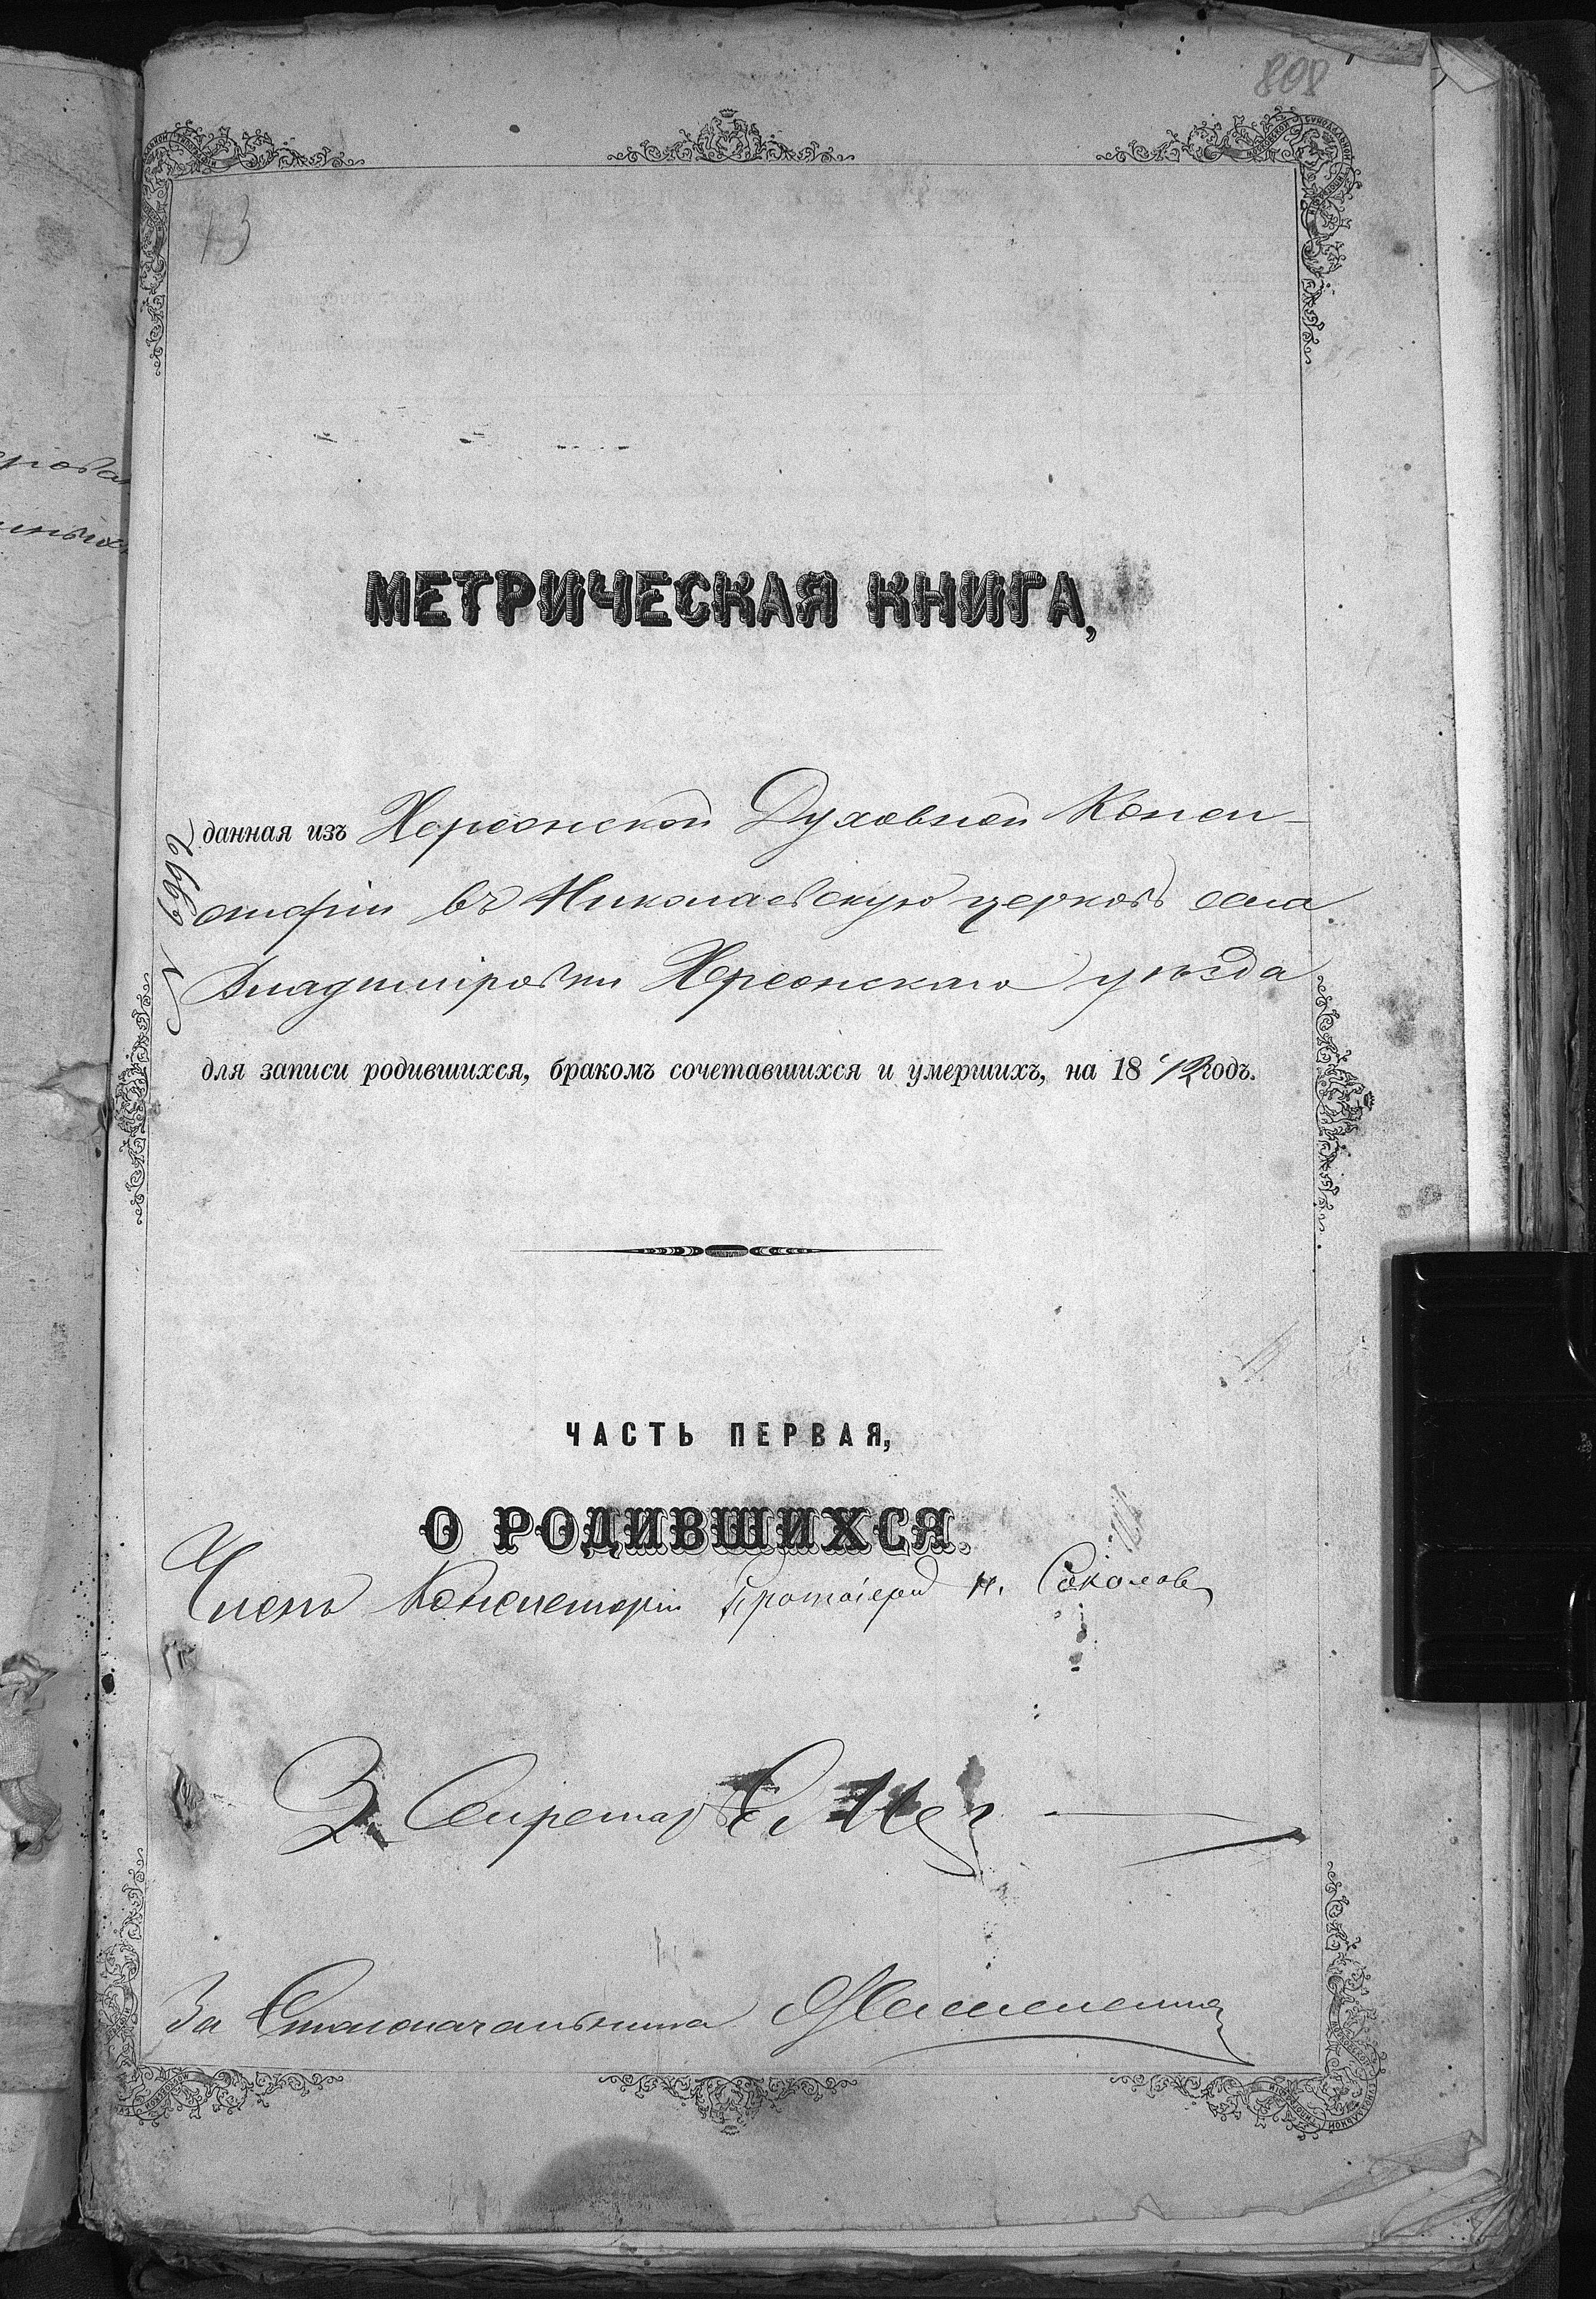 808
13
МЕТРИЧЕСКАЯ КНИГА,
данная изъ Херсонской Духовной Конси-
сторіи въ Николаевскую церковь села
Владиміровки Херсонскаго уѣзда
для записи родившихся, бракомъ сочетавшихся и умершихъ, на 18 72 годъ.
N 6992
ЧАСТЬ ПЕРВАЯ,
О РОДИВШИХСЯ.
Членъ Консисторіи Протоіерей Н. Соколовъ
За Секретаря
За Столоначальника